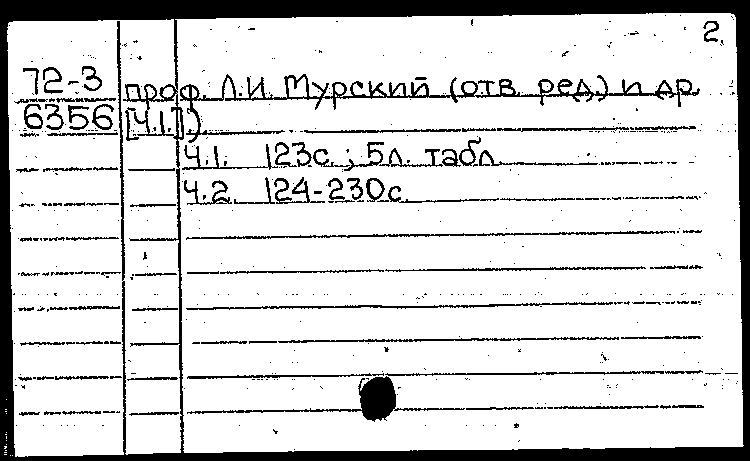 2.
72-3 проф. Л.И. Мурский (отв. ред.) и др.
6356 [Ч.1.])
Ч.1. 123с.; 5л. табл.
Ч.2. 124-230с.